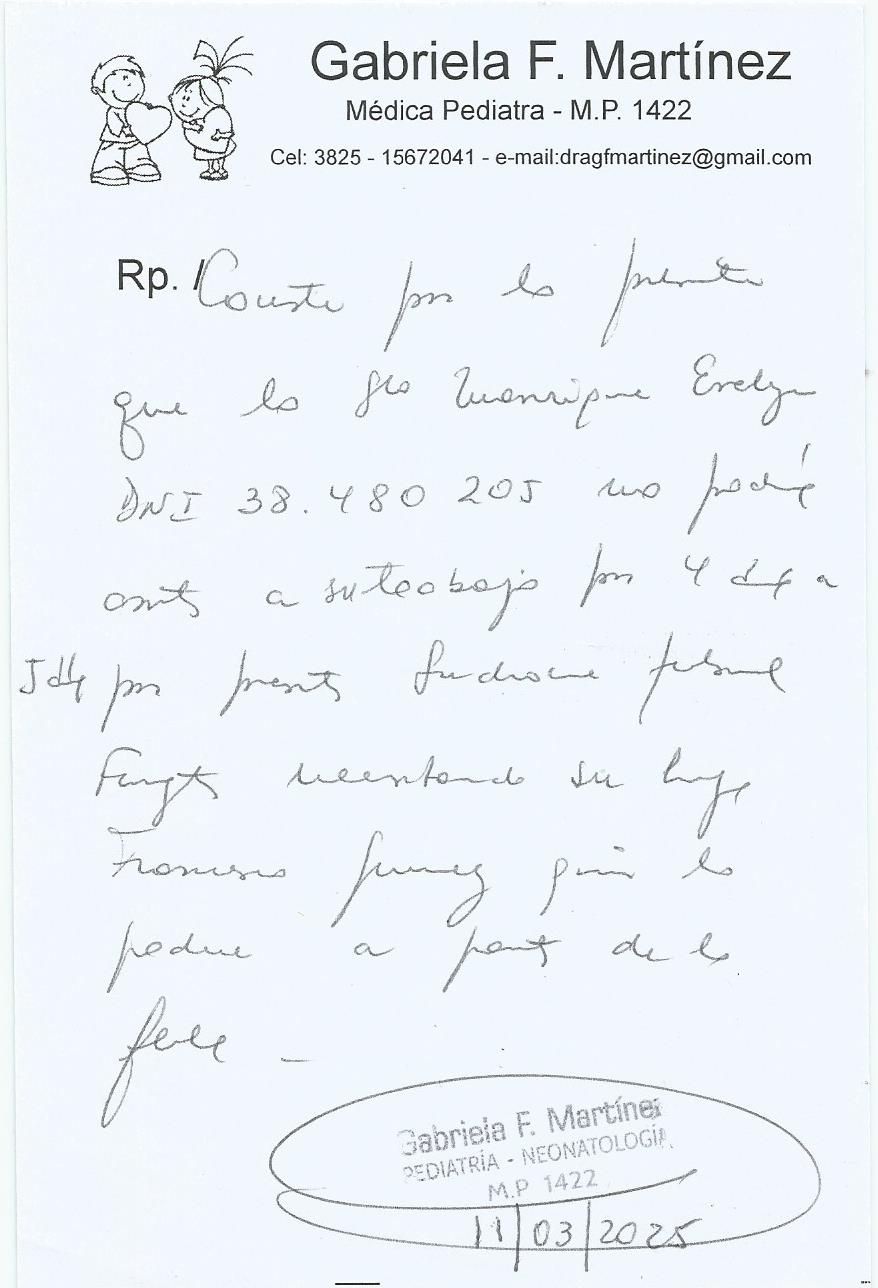 Gabriela F. Martínez
Médica Pediatra - M.P. 1422
Cel: 3825 - 15672041 - e-mail:dragfmartinez@gmail.com
Rp. / Conste por la presente
que la Sra Manrique Evelyn
DNI 38.480 205 no podrá
asistir a su trabajo por 4 días a
5 días por presentar Síndrome febril
su hijo
Francisco quien lo
padece a partir de la
fecha -
Gabriela F. Martínez
PEDIATRÍA - NEONATOLOGÍA
M.P 1422
11/03/2025